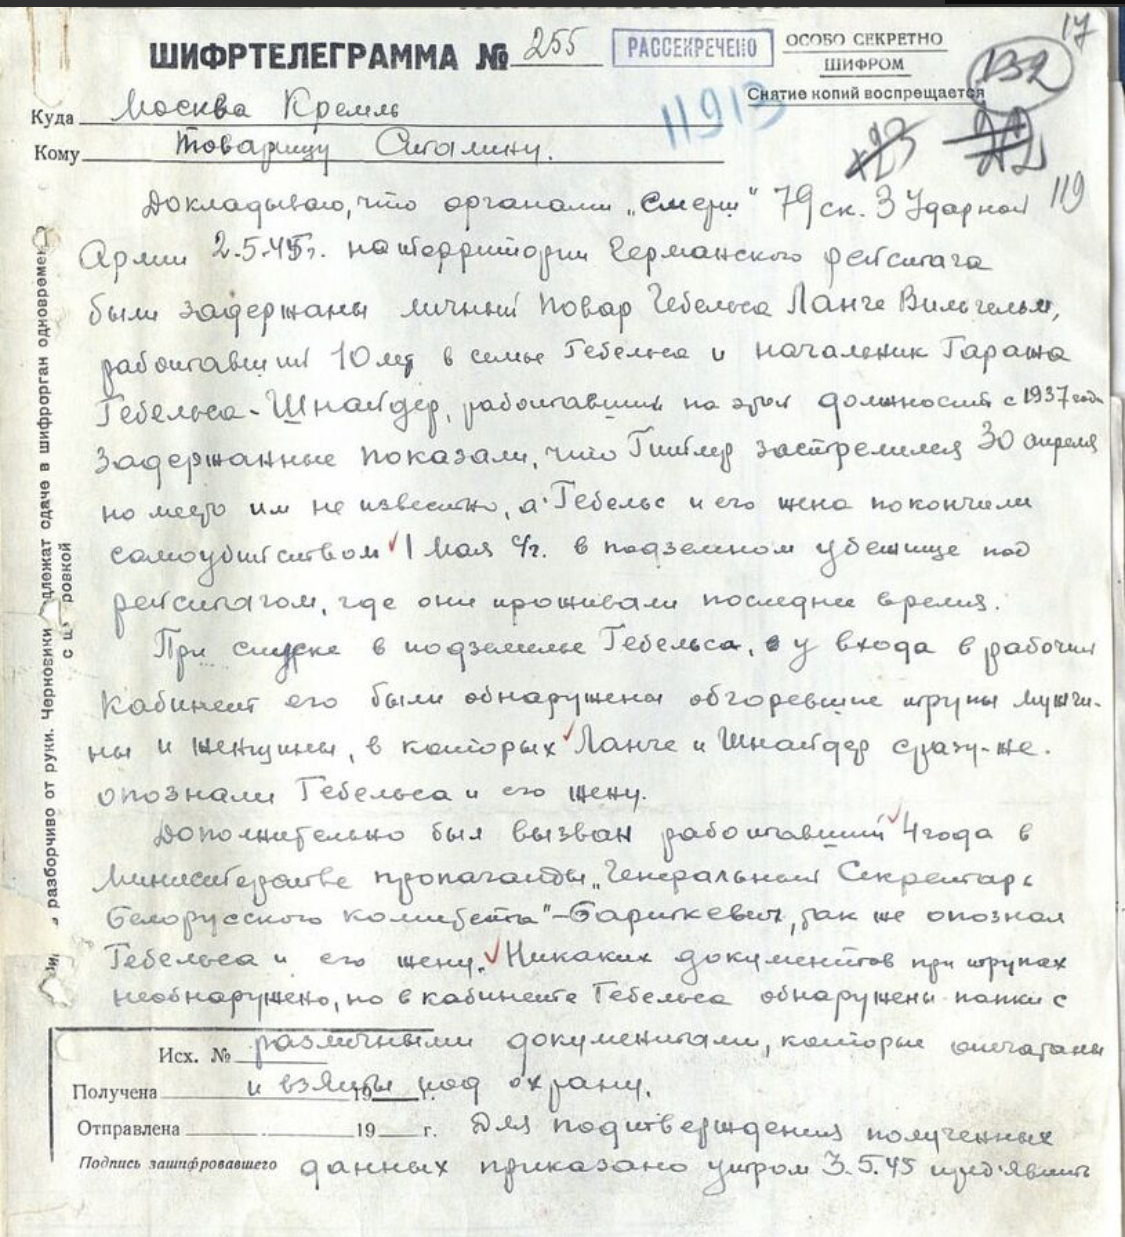 17
ШИФРТЕЛЕГРАММА № 255
РАССЕКРЕЧЕНО
ОСОБО СЕКРЕТНО
ШИФРОМ
Снятие копий воспрещается
132
11913
Куда Москва Кремль
Кому Товарищу Сталину.
23
22
119
Докладываю, что органами „Смерш" 79 ск. 3 Ударной
Армии 2.5.45г. на территории Германского рейхстага
были задержаны личный повар Гебельса Ланге Вильгельм,
работавший 10 лет в семье Гебельса и начальник Гаража
Гебельса - Шнайдер, работавший на этой должности с 1937 года
Задержанные показали, что Гитлер застрелился 30 апреля
но место им не известно, а Гебельс и его жена покончили
самоубийством 1 мая с/г. в подземном убежище под
рейхстагом, где они проживали последнее время.
При спуске в подземелье Гебельса, у входа в рабочий
кабинет его были обнаружены обгоревшие трупы мужчи-
ны и женщины, в которых Ланге и Шнайдер сразу-же
опознали Гебельса и его жену.
Дополнительно был вызван работавший 4 года в
Министерстве пропаганды „Генеральный Секретарь
белорусского комитета" - так же опознал
Гебельса и его жену. Никаких документов при трупах
необнаружено, но в кабинете Гебельса обнаружены папки с
различными документами, которые опечатаны
и взяты под охрану.
Для подтверждения полученных
данных приказано утром 3.5.45 пред'явить
Исх. №
Получена 19 г.
Отправлена 19 г.
Подпись зашифровавшего
разборчиво от руки. Черновики длежат сдаче в шифрорган одновремен
с ш ровкой